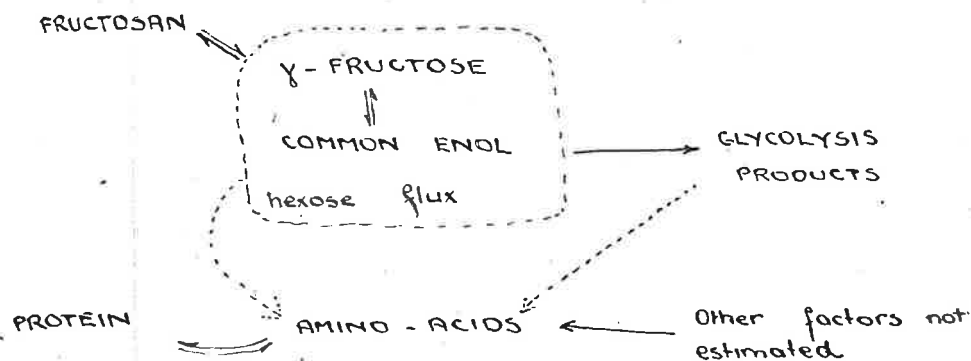 FRUCTOSAN
γ - FRUCTOSE
COMMON ENOL
hexose flux
GLYCOLYSIS
PRODUCTS
PROTEIN
AMINO - ACIDS
Other factors not
estimated